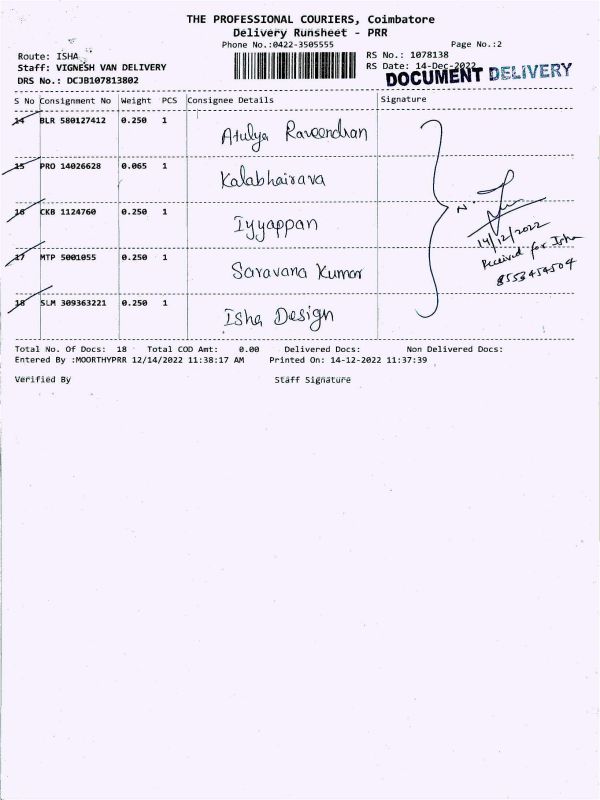 THE PROFESSIONAL COURIERS, Coimbatore
Delivery Runsheet - PRR
Phone No.:0422-3505555 Page No.:2
Route: ISHA RS No.: 1078138
Staff: VIGNESH VAN DELIVERY RS Date: 14-Dec-2022
DRS No.: DCJB107813802 DOCUMENT DELIVERY
S No Consignment No Weight PCS Consignee Details Signature
14 BLR 580127412 0.250 1 Atulya Raveendran
15 PRO 14026628 0.065 1 Kalabhairava
16 CKB 1124760 0.250 1 Iyyappan
17 MTP 5001055 0.250 1 Saravana Kumar
18 SLM 309363221 0.250 1 Isha Design
N.
14/12/2022
Received for Isha
8553454504
Total No. Of Docs: 18 Total COD Amt: 0.00 Delivered Docs: Non Delivered Docs:
Entered By :MOORTHYPRR 12/14/2022 11:38:17 AM Printed On: 14-12-2022 11:37:39
Verified By Staff Signature